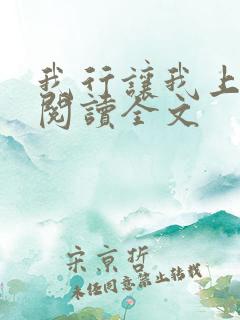 我行讓我上
閱讀全文
宋京哲
未經同意禁止轉載